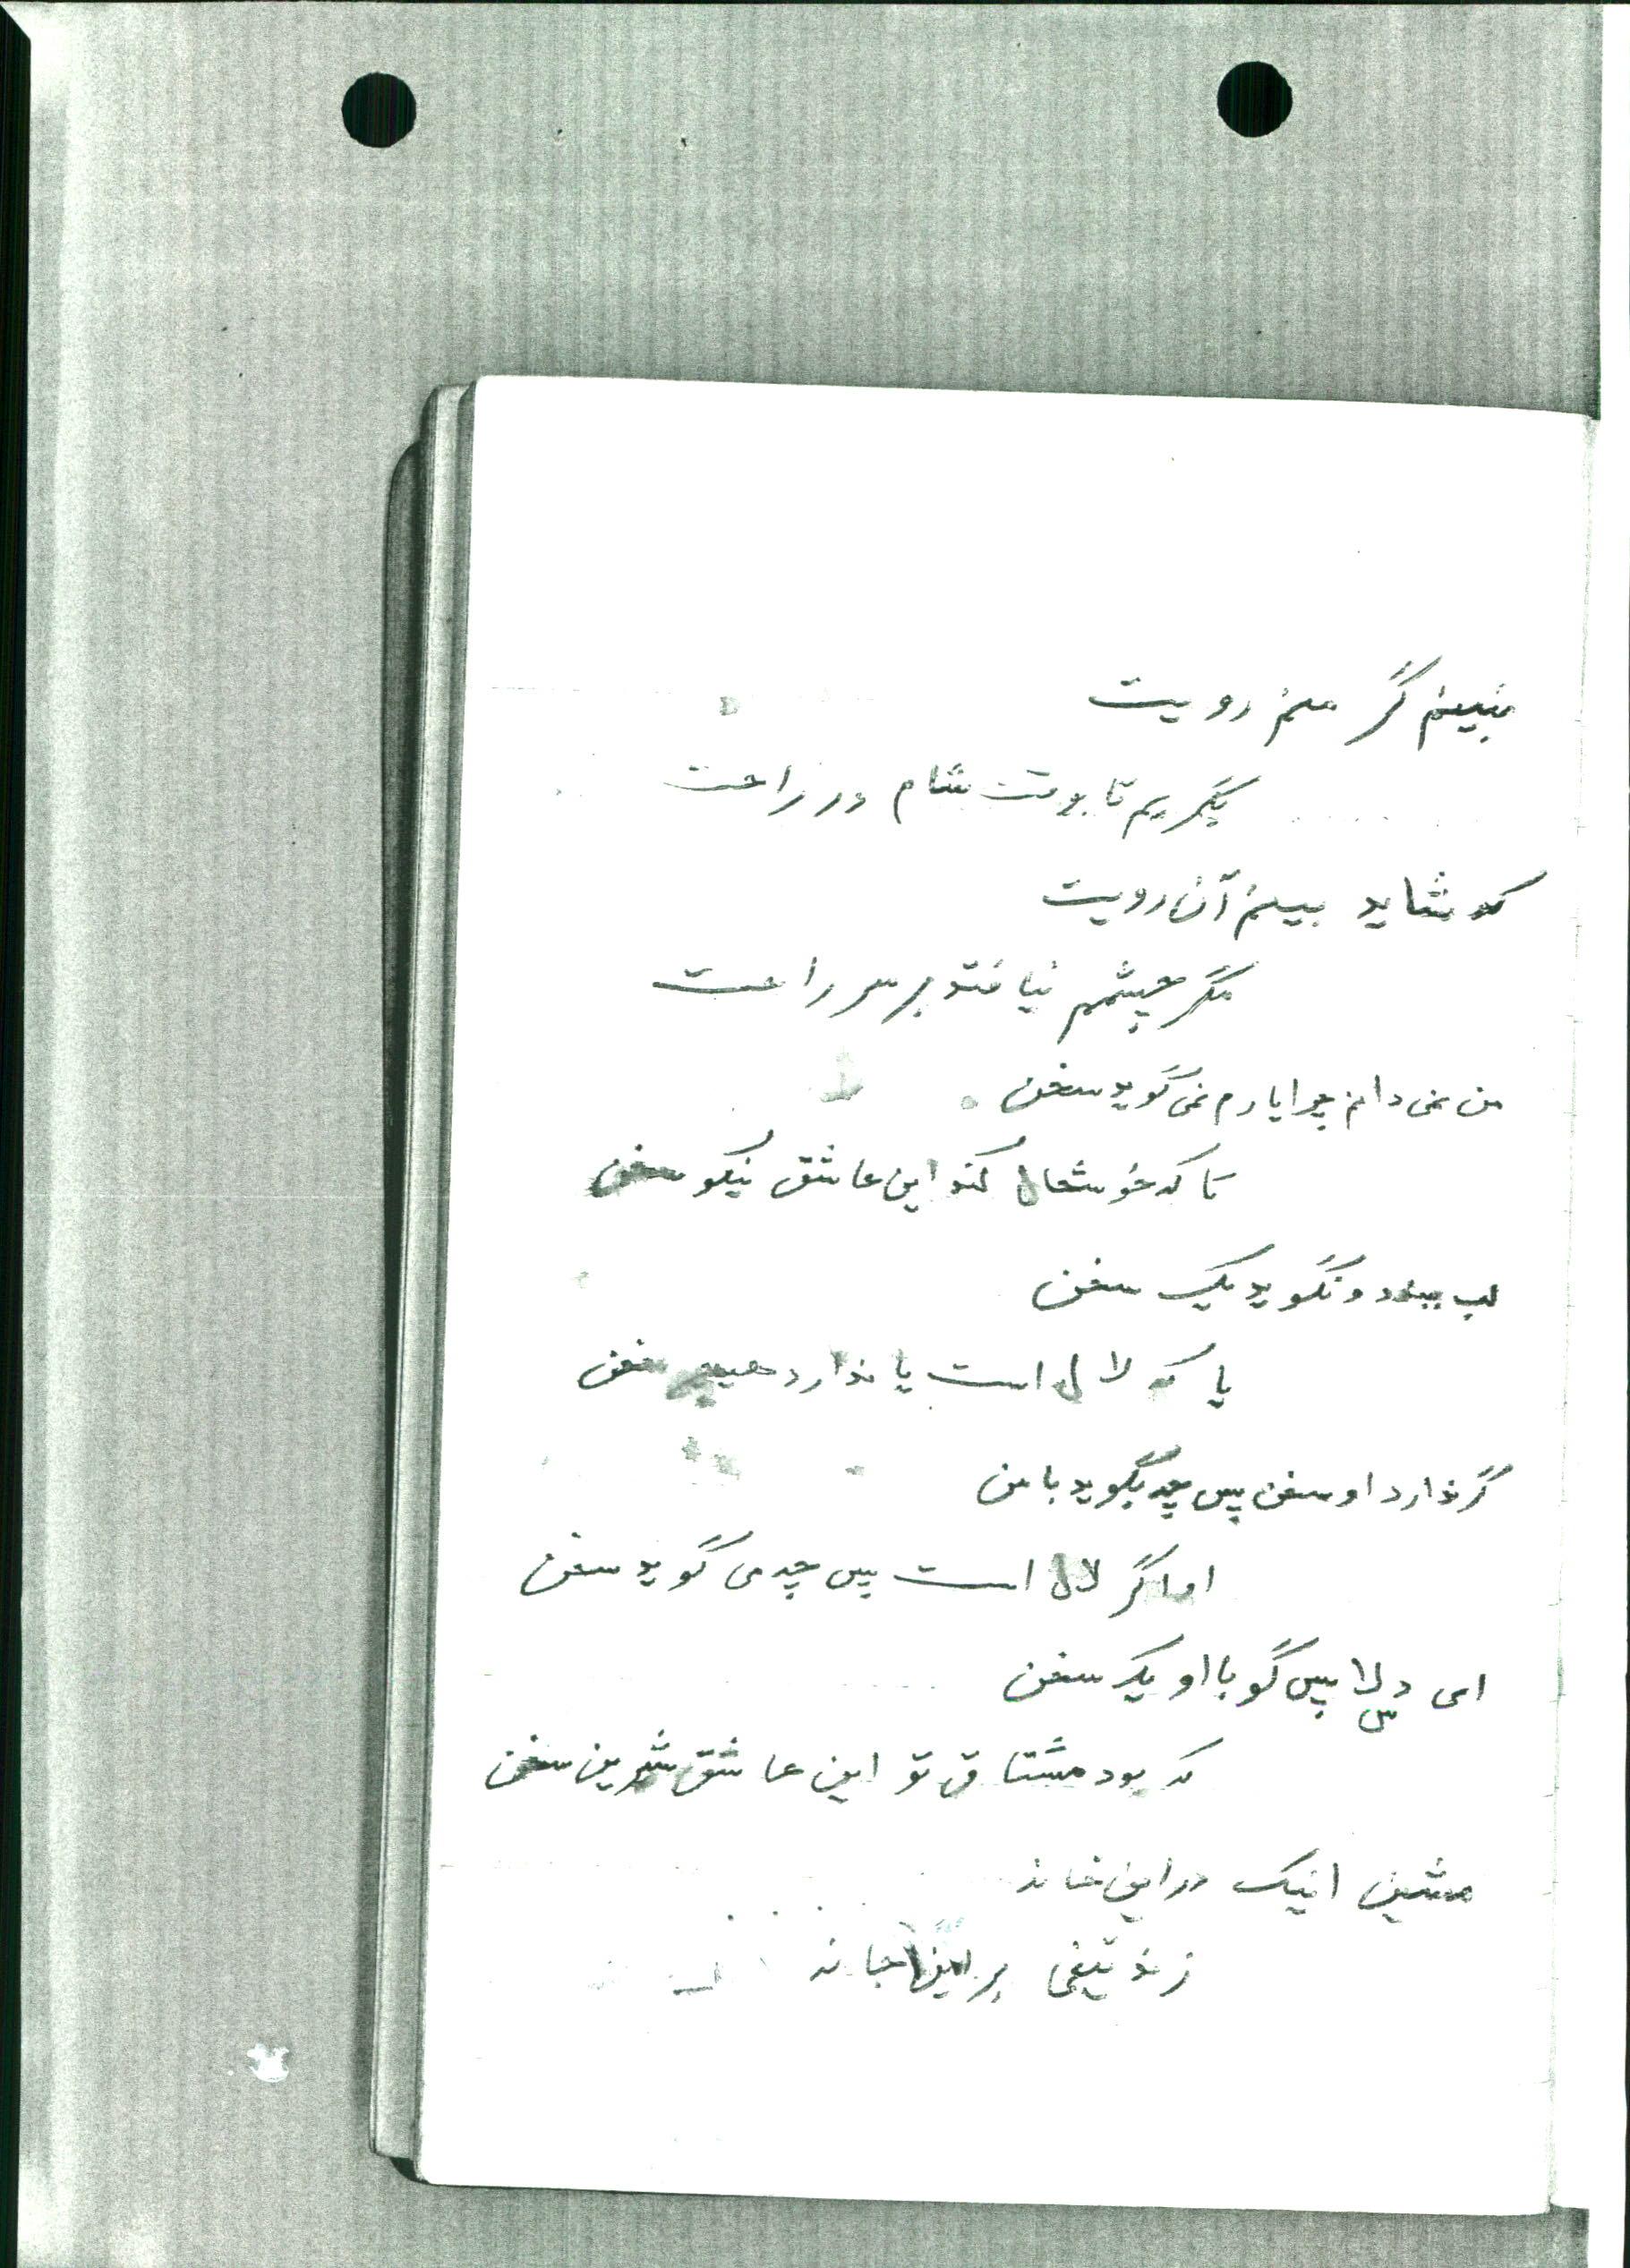 نبینم گر منم رویت
بگریم تا بوقت شام در راهت
که شاید بینم آن رویت
مگر چشمم نیافتد بر سر راهت
من نمی دانم چرا یارم نمی گوید سخن
تا که خوشحال کند این عاشق نیکو سخن
لب ببندد و نگوید یک سخن
یا که لال است یا ندارد هیچ سخن
گر ندارد او سخن پس چه بگوید با من
اما گر لال است پس چه می گوید سخن
ای دلا پس گو با او یک سخن
که بود مشتاق تو این عاشق شیرین سخن
منشین اینک در این خانه
زند تیغی بر این جانه